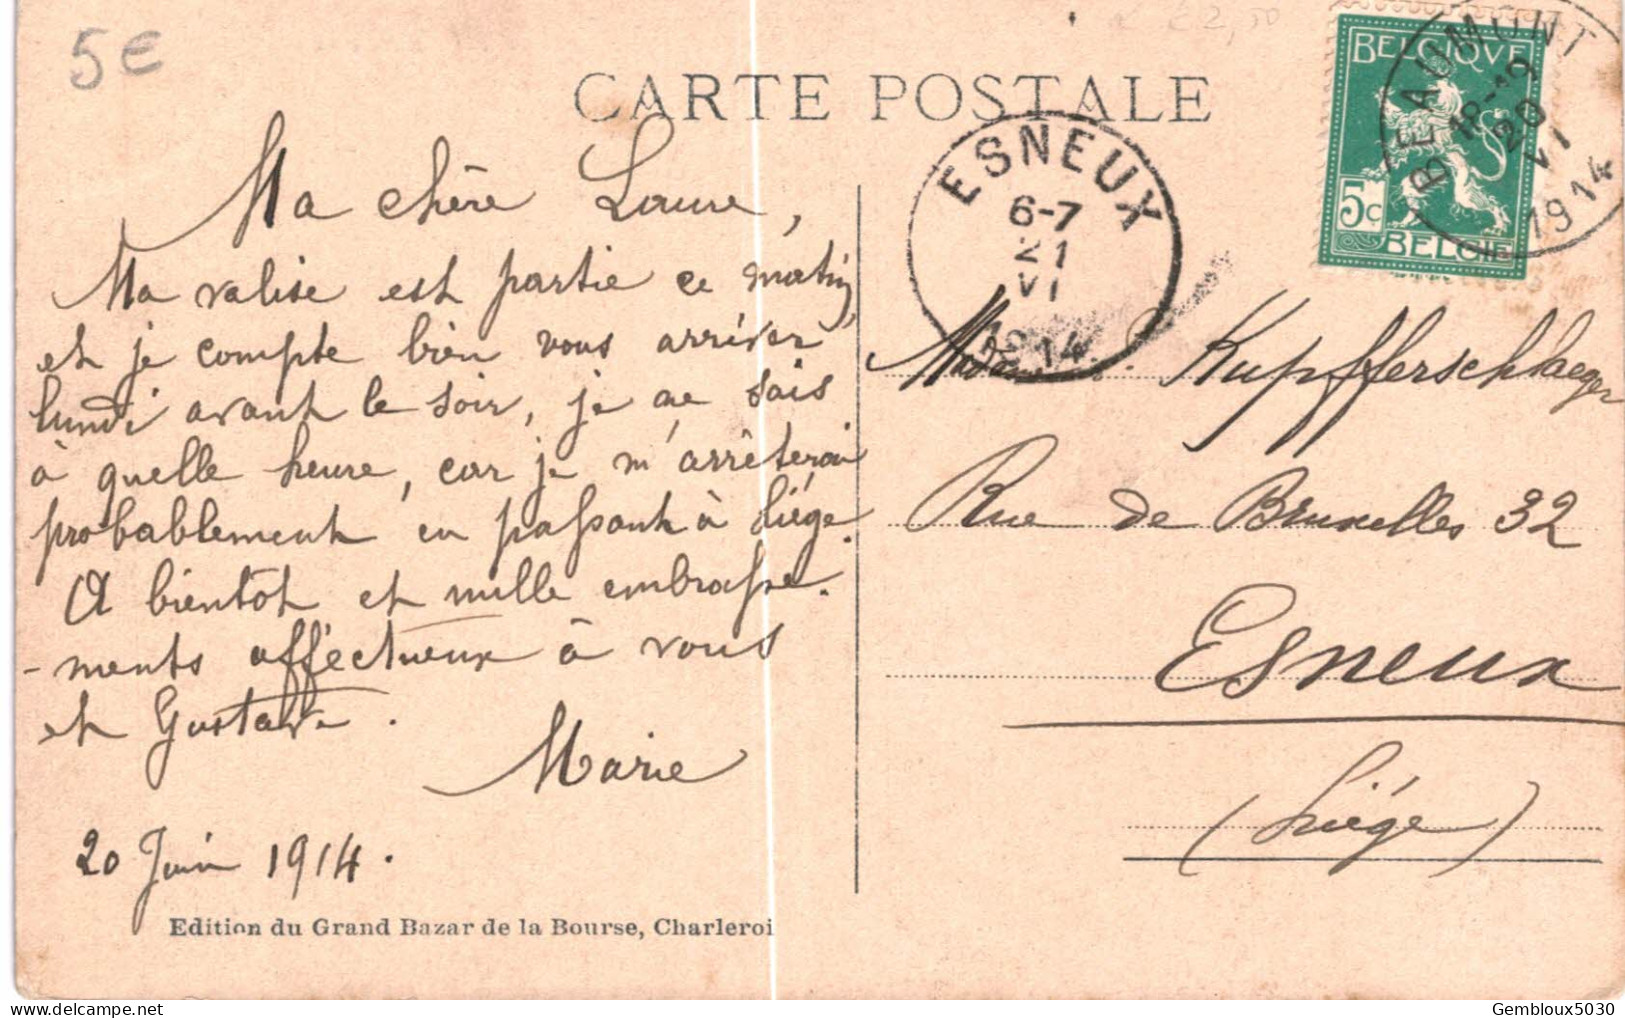 5€
CARTE POSTALE
BELGIQUE
5c
BELGIE
BEAUMONT
18-19
20
VI
1914
ESNEUX
6-7
21
VI
1914
Ma chère Laure,
Ma valise est partie ce matin,
et je compte bien vous arriver
lundi avant le soir, je ne sais
à quelle heure, car je m'arrêterai
probablement en passant à Liége.
A bientôt et mille embrasse-
-ments affectueux à vous
et Gustave.
Marie
20 Juin 1914.
Madame Kupfferschlaeger
Rue de Bruxelles 32
Esneux
(Liége)
Edition du Grand Bazar de la Bourse, Charleroi
Gembloux5030